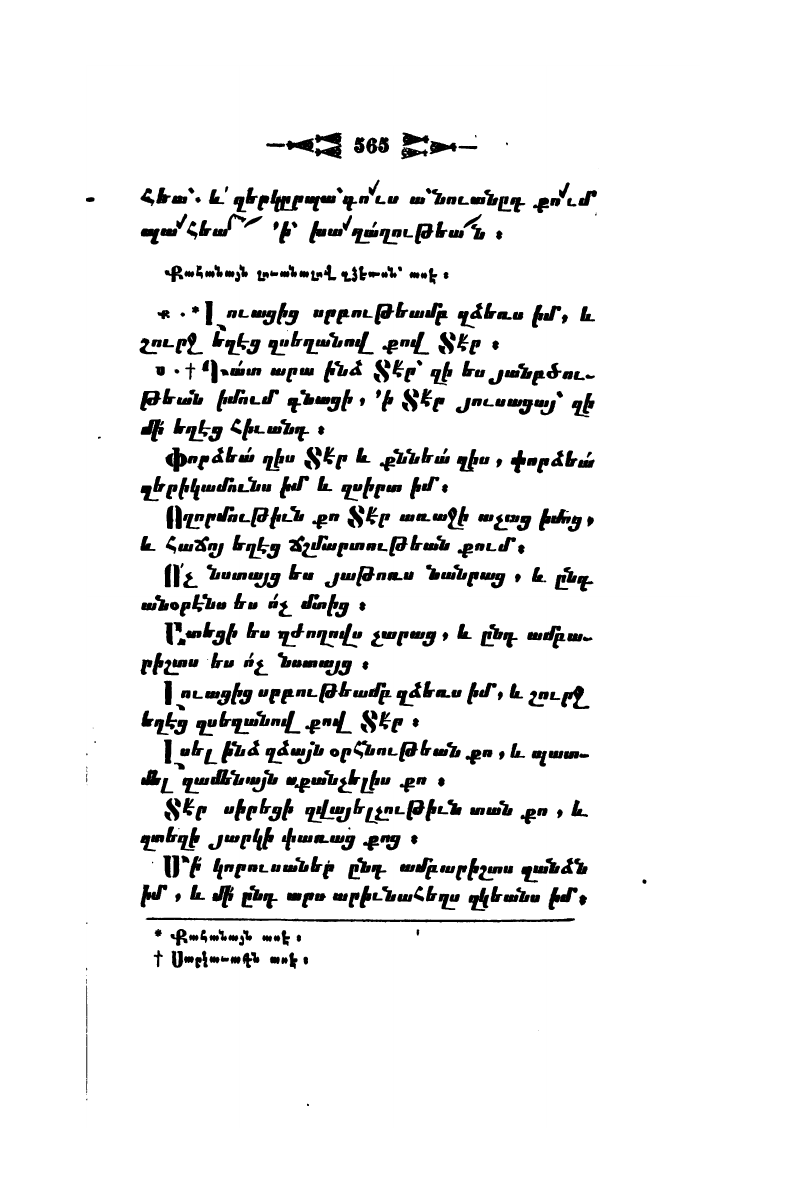 565
հեա՝. և՛ զերկըրպա՝գո՜ւս ա՝նուանըդ քո՜ւմ
պա՜հեա՜ ՚ի՝ խա՜ղաղութեա՜ն ։
Քահանայն լուանալով զձեռսն՝ ասէ ։
Ք . * Լուացից սրբութեամբ զձեռս իմ, և
շուրջ եղէց զսեղանով քով Տէր ։
Ս . † Դա՛տ արա ինձ Տէր՝ զի ես յանբծու-
թեան իմում գնացի, ՚ի Տէր յուսացայ՝ զի
մի եղէց հիւանդ ։
Փորձեա՛ զիս Տէր և քննեա՛ զիս, փորձեա՛
զերիկամունս իմ և զսիրտ իմ ։
Ողորմութիւն քո Տէր առաջի աչաց իմոց,
և հաճոյ եղէց ճշմարտութեան քում ։
Ո՛չ նստայց ես յաթոռս նանրաց, և ընդ
անօրէնս ես ո՛չ մտից ։
Ատեցի ես զժողովս չարաց, և ընդ ամբա-
րիշտս ես ո՛չ նստայց ։
Լուացից սրբութեամբ զձեռս իմ, և շուրջ
եղէց զսեղանով քով Տէր ։
Լսել ինձ զձայն օրհնութեան քո, և պատ-
մել զամենայն սքանչելիս քո ։
Տէր սիրեցի զվայելչութիւն տան քո, և
զտեղի յարկի փառաց քոց ։
Մի՛ կորուսաներ ընդ ամբարիշտս զանձն
իմ, և մի ընդ արս արիւնահեղս զկեանս իմ ։
* Քահանայն ասէ ։
† Սարկաւագն ասէ ։